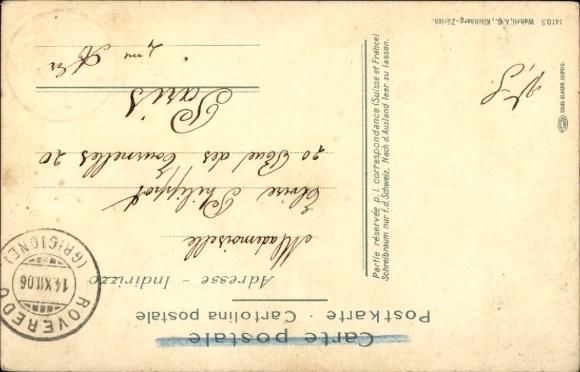 Carte postale
Postkarte · Cartolina postale
Adresse - Indirizzo
Mademoiselle
Elvire Philippot
20 Boul. des Tournelles 20
Paris
ROVEREDO
14.XII.06
(GRIGIONE)
Partie réservée p. l. correspondance (Suisse et France)
Schreibraum nur f. d. Schweiz. Nach d. Ausland leer zu lassen.
1410 S Wehrli, A.G., Kilchberg-Zürich.
LOUIS GLASER, LEIPZIG